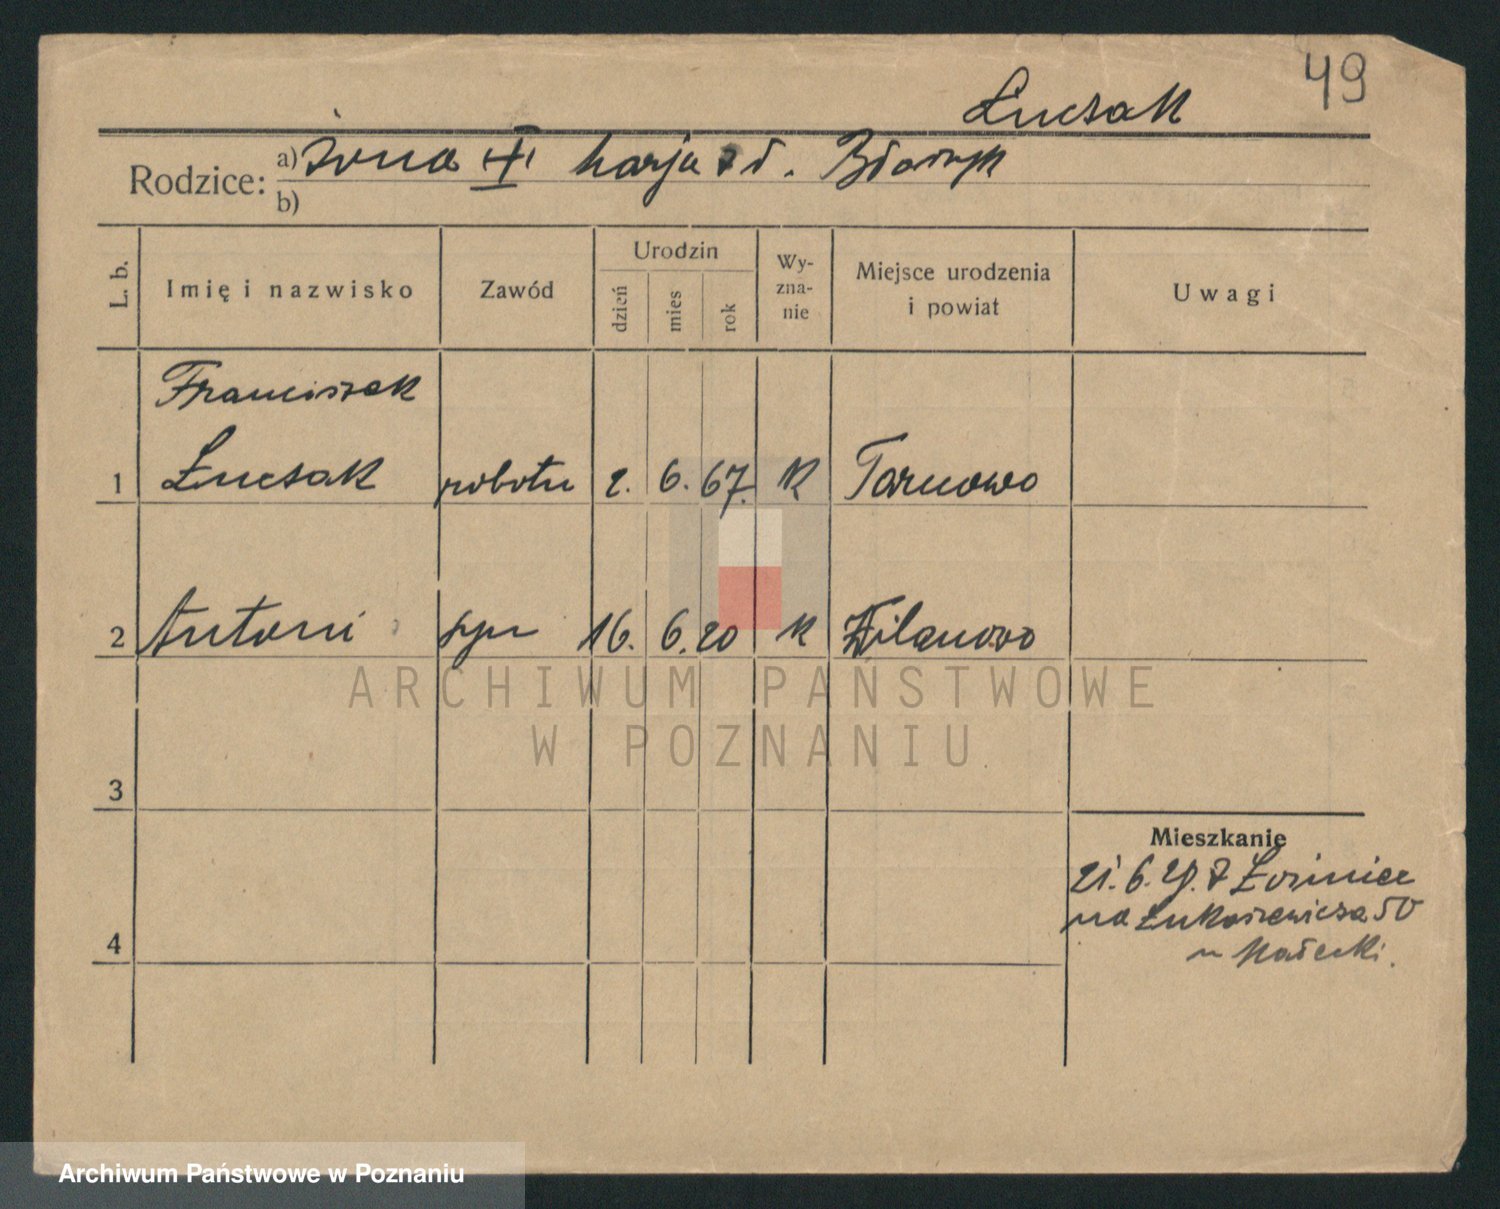 49
Łuczak
Rodzice: a) żona III Marja z d. Błaszyk
b)
L. b.
Imię i nazwisko
Zawód
Urodzin
dzień
mies
rok
Wy-
zna-
nie
Miejsce urodzenia
i powiat
Uwagi
Franciszek
1 Łuczak robotn 2. 6. 67. K Tarnowo
2 Antoni syn 16. 6. 20 K Wilanowo
3
Mieszkanie
21. 6. 29. z
na Łukaszewicza 50
4
u Małecki.
ARCHIWUM PAŃSTWOWE
W POZNANIU
Archiwum Państwowe w Poznaniu